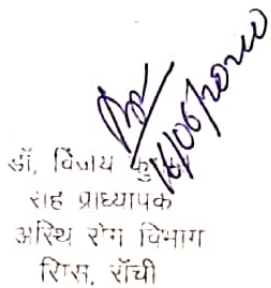 16/06/2020
डॉ. विजय कुमार
सह प्राध्यापक
अस्थि रोग विभाग
रिम्स, राँची